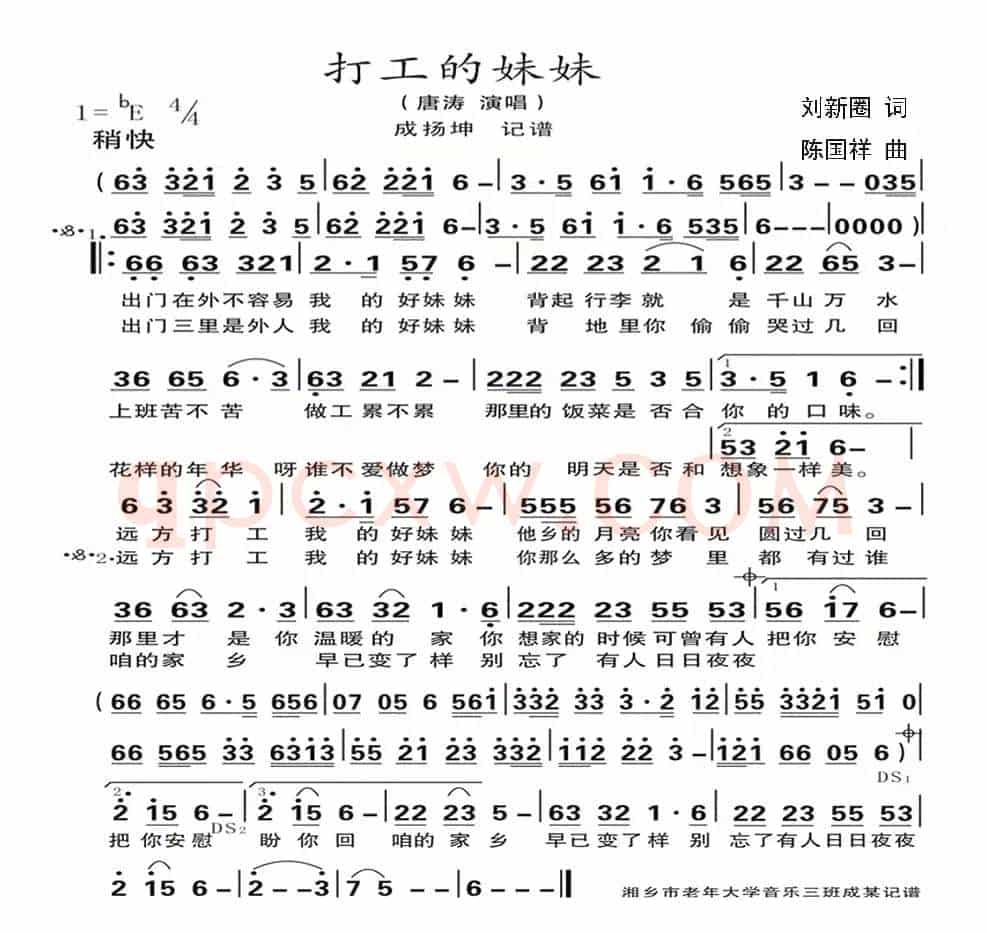 打工的妹妹
（唐涛 演唱）
1= bE 4/4
成扬坤 记谱
刘新圈 词
稍快
陈国祥 曲
( 63 321 2 3 5 | 62 221 6 – | 3 · 5 61 1 · 6 565 | 3 – – 035 |
·𝄋·1. 63 321 2 3 5 | 62 221 6 – | 3 · 5 61 1 · 6 535 | 6 – – – | 0000 )
‖: 66 63 321 | 2 · 1 57 6 – | 22 23 2 1 6 | 22 65 3 – |
出门在外不容易 我 的好妹妹 背起行李就 是千山万水
出门三里是外人 我 的好妹妹 背 地里你 偷偷哭过几回
36 65 6 · 3 | 63 21 2 – | 222 23 5 3 5 | 1 3 · 5 1 6 – :‖
上班苦不苦 做工累不累 那里的饭菜是否合你的口味。
2 53 21 6 – |
花样的年华 呀谁不爱做梦 你的 明天是否和想象一样美。
qpcxw.com
6 3 32 1 | 2 · 1 57 6 – | 555 56 76 3 | 56 75 3 – |
远方打工 我 的好妹妹 他乡的月亮你看见 圆过几回
·𝄋·2. 远方打工 我 的好妹妹 你那么多的梦里 都有过谁
36 63 2 · 3 | 63 32 1 · 6 | 222 23 55 53 | 1 56 17 6 – |
那里才是你温暖的家你想家的时候可曾有人把你安慰
咱的家乡 早已变了样别忘了 有人日日夜夜
( 66 65 6 · 5 656 | 07 05 6 561 | 332 33 3 · 2 12 | 55 3321 51 0 |
66 565 33 6313 | 55 21 23 332 | 112 22 3 – | 121 66 05 6 ) |
DS1
2. 2 15 6 – | 3. 2 15 6 – | 22 23 5 – | 63 32 1 · 6 | 22 23 55 53 |
DS2
把你安慰 盼你回 咱的家乡 早已变了样别忘了有人日日夜夜
2 15 6 – | 2 – – 3 | 7 5 – – | 6 – – ‖
湘乡市老年大学音乐三班成某记谱